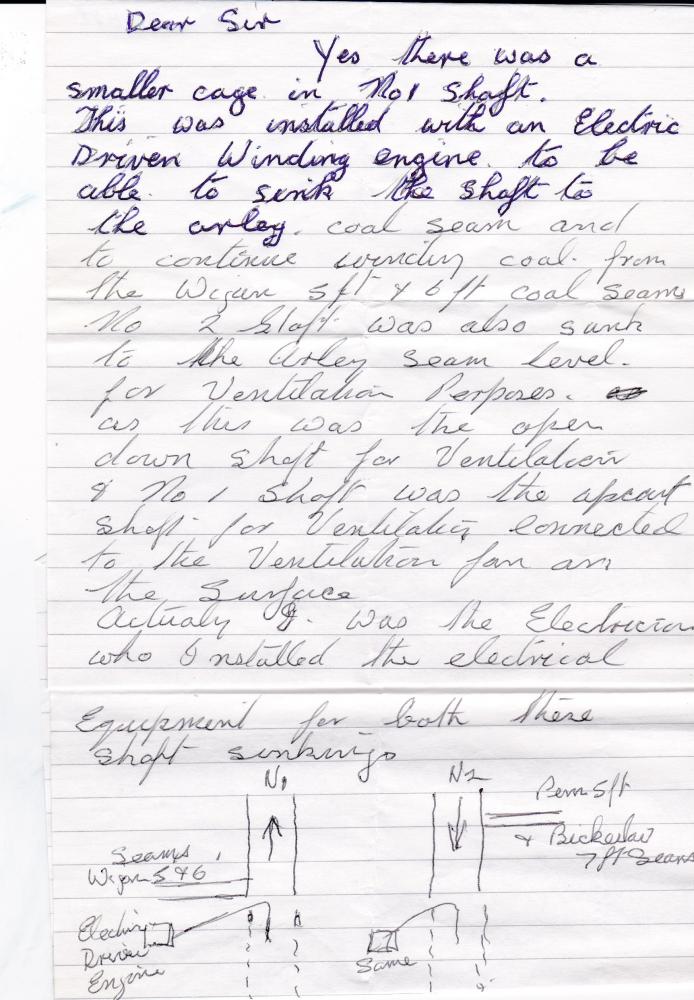 Dear Sir
Yes there was a
smaller cage in No 1 Shaft.
This was installed with an Electric
Driven Winding engine. to be
able. to sink the shaft to
the arley. coal seam and
to continue winding coal. from
the Wigan 5ft & 6ft coal seams
No 2 Shaft was also sunk
to the Arley seam level.
for Ventilation Perposes.
as this was the open
down shaft for Ventilation
& No 1 Shaft was the upcast
shaft for Ventilation connected
to the Ventilation fan on
the Surface
Actualy I. was the Electrician
who Installed the electrical
Equipment for both these
shaft sinkings
N1 N2
5ft
& Bickerlaw
7ft Seams
Seams
Wigan 5 & 6
Electric
Driven
Engine
Same